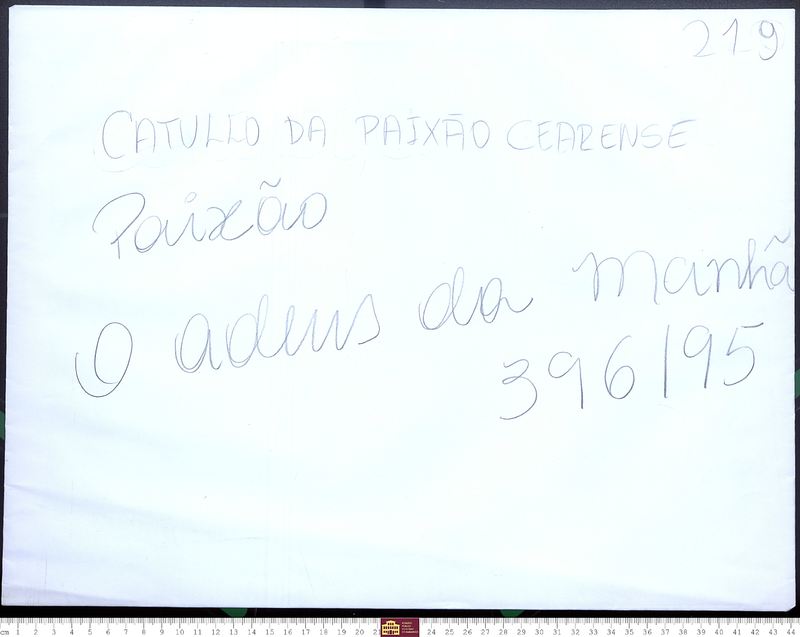 219
CATULLO DA PAIXÃO CEARENSE
Paixão
O adeus da manhã
396/95
cm 1 2 3 4 5 6 7 8 9 10 11 12 13 14 15 16 17 18 19 20 2 24 25 26 27 28 29 30 31 32 33 34 35 36 37 38 39 40 41 42 43 44